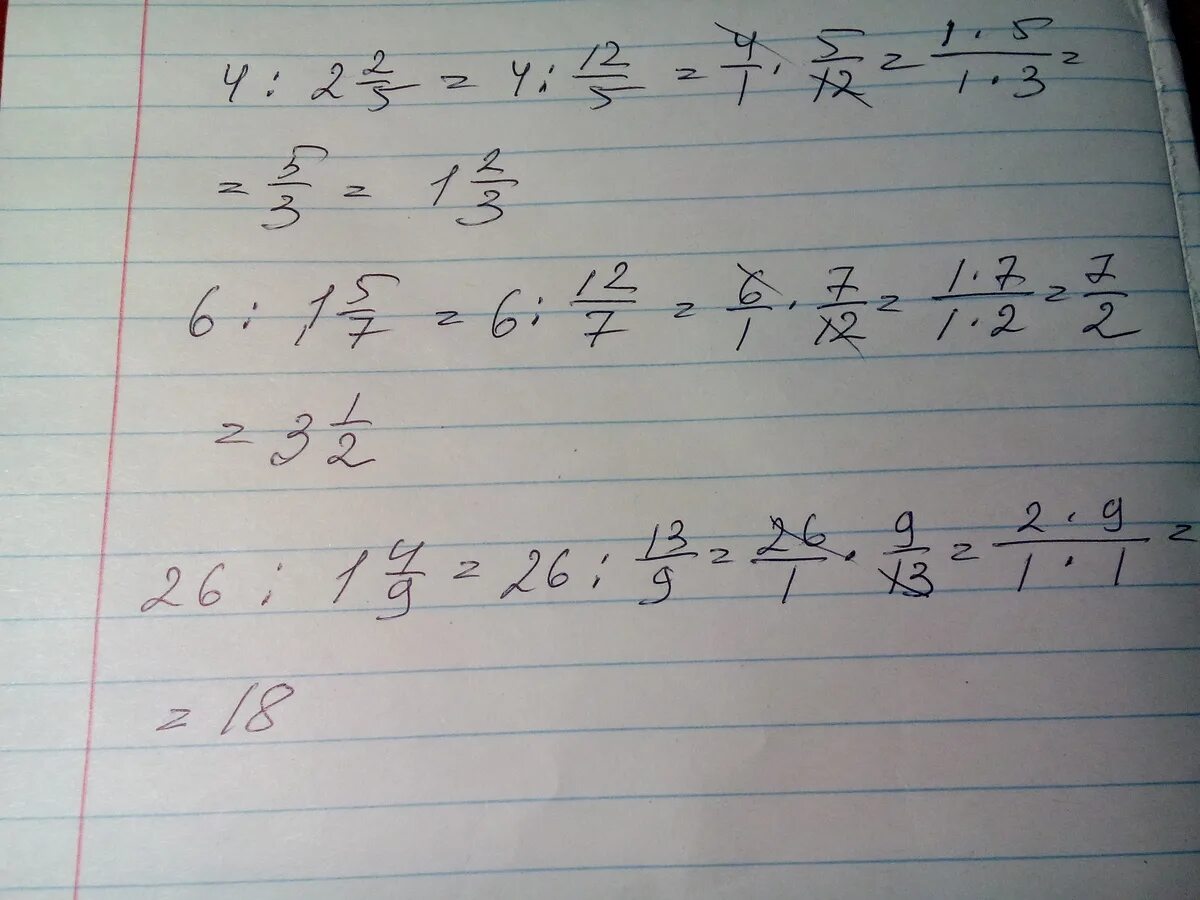 4 : 2 2/5 = 4 : 12/5 = 4/1 · 5/12 = 1 · 5/1 · 3 =
= 5/3 = 1 2/3
6 : 1 5/7 = 6 : 12/7 = 6/1 · 7/12 = 1 · 7/1 · 2 = 7/2
= 3 1/2
26 : 1 4/9 = 26 : 13/9 = 26/1 · 9/13 = 2 · 9/1 · 1 =
= 18